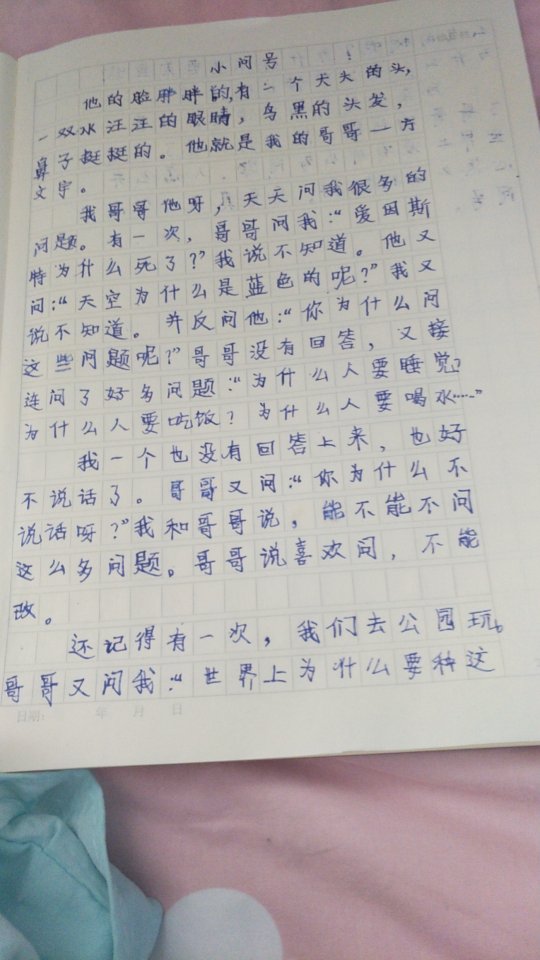 小问号
他的脸胖胖的,有一个大大的头,
一双水汪汪的眼睛,乌黑的头发,
鼻子挺挺的。他就是我的哥哥一方
文宇。
我哥哥他呀,天天问我很多的
问题。有一次,哥哥问我:“爱因斯
特为什么死了?”我说不知道。他又
问:“天空为什么是蓝色的呢?”我又
说不知道。并反问他:“你为什么问
这些问题呢?”哥哥没有回答,又接
连问了好多问题:“为什么人要睡觉?
为什么人要吃饭?为什么人要喝水……”
我一个也没有回答上来,也好
不说话了。哥哥又问:“你为什么不
说话呀?”我和哥哥说,能不能不问
这么多问题。哥哥说喜欢问,不能
改。
还记得有一次,我们去公园玩。
哥哥又问我:“世界上为什么要种这
日期: 年 月 日